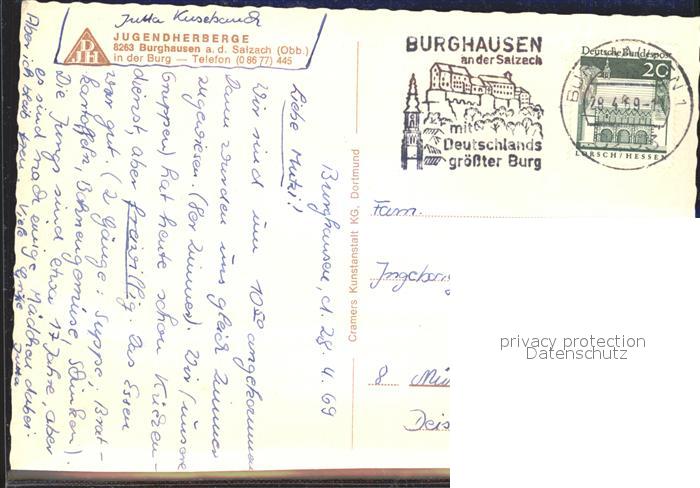 Jutta Kusebauch
JUGENDHERBERGE
8263 Burghausen a. d. Salzach (Obb.)
in der Burg — Telefon (0 86 77) 445
Burghausen, d. 28. 4. 69
Liebe Mutti!
Wir sind um 10⁰⁰ angekommen
Dann wurden uns gleich Zimmer
zugewiesen. (8er Zimmer). Wir (unsere
Gruppen) hat heute schon Küchen-
dienst, aber freiwillig. Das Essen
war gut. (2 Gänge: Suppe, Brat-
kartoffeln, Bohnengemüse, Schinken).
Die Jungs sind etwa 17 Jahre, aber
es sind noch einige Mädchen dabei.
Aber ich bleib treu. Viele Grüße Jutta
Cramers Kunstanstalt KG, Dortmund
BURGHAUSEN
an der Salzach
mit
Deutschlands
größter Burg
Deutsche Bundespost
20
LORSCH/HESSEN
29.4.69-1
Fam.
8 Mün
privacy protection
Datenschutz